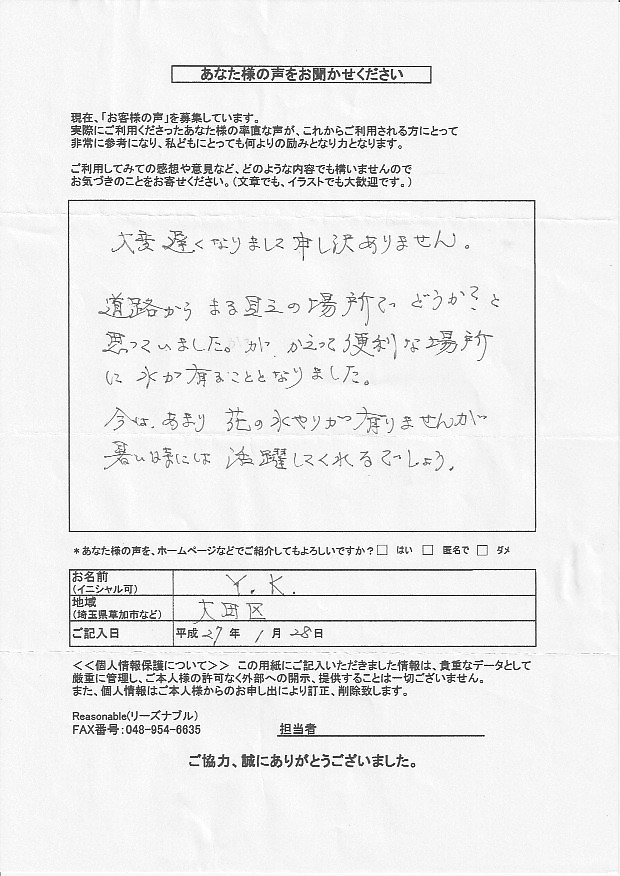 あなた様の声をお聞かせください
現在、「お客様の声」を募集しています。
実際にご利用くださったあなた様の率直な声が、これからご利用される方にとって
非常に参考になり、私どもにとっても何よりの励みとなり力となります。
ご利用してみての感想や意見など、どのような内容でも構いませんので
お気づきのことをお寄せください。(文章でも、イラストでも大歓迎です。)
大変遅くなりまして申し訳ありません。
道路から まる見えの場所で どうか?と
思っていました。が、かえって便利な場所
に水が有ることとなりました。
今は、あまり 花の水やりが 有りませんが
暑い時には 活躍してくれるでしょう。
*あなた様の声を、ホームページなどでご紹介してもよろしいですか?□ はい □ 匿名で □ ダメ
お名前
(イニシャル可) Y.K.
地域
(埼玉県草加市など) 大田区
ご記入日 平成 27 年 1 月 28 日
<<個人情報保護について>> この用紙にご記入いただきました情報は、貴重なデータとして
厳重に管理し、ご本人様の許可なく外部への開示、提供することは一切ございません。
また、個人情報はご本人様からのお申し出により訂正、削除致します。
Reasonable(リーズナブル)
FAX番号:048-954-6635 担当者
ご協力、誠にありがとうございました。